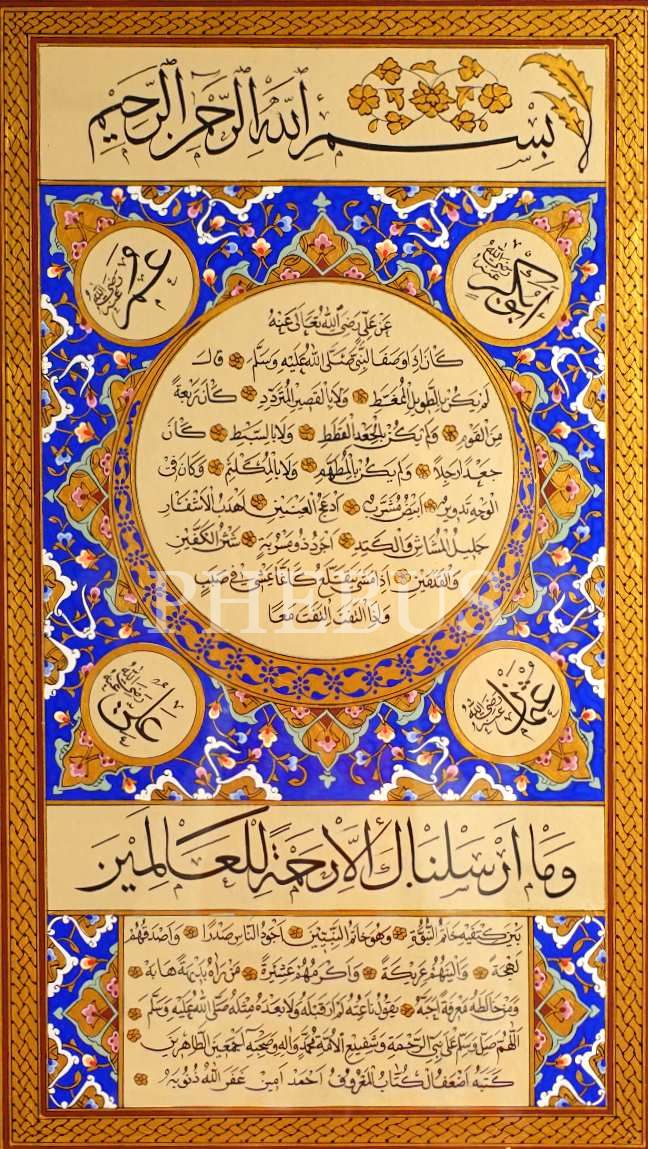 بسم الله الرحمن الرحيم
أبو بكر رضي الله عنه
عمر رضي الله عنه
عن علي رضي الله تعالى عنه
كان اذا وصف النبي صلى الله عليه وسلم قال
لم يكن بالطويل الممغط ولا بالقصير المتردد كان ربعة
من القوم ولم يكن بالجعد القطط ولا بالسبط كان
جعدا رجلا ولم يكن بالمطهم ولا بالمكلثم وكان في
الوجه تدوير ابيض مشرب ادعج العينين اهدب الاشفار
جليل المشاش والكتد اجرد ذو مسربة شثن الكفين
والقدمين اذا مشى يتقلع كانما يمشي في صبب
واذا التفت التفت معا
PHEBUS
عثمان رضي الله عنه
علي رضي الله عنه
وما أرسلناك إلا رحمة للعالمين
بين كتفيه خاتم النبوة وهو خاتم النبيين اجود الناس صدرا واصدقهم
لهجة والينهم عريكة واكرمهم عشيرة من رآه بديهة هابه
ومن خالطه معرفة احبه يقول ناعته لم ار قبله ولا بعده مثله صلى الله عليه وسلم
اللهم صل وسلم على نبي الرحمة وشفيع الامة محمد واله وصحبه اجمعين الطاهرين
كتبه اضعف الكتاب المعروف احمد امين غفر الله ذنوبه